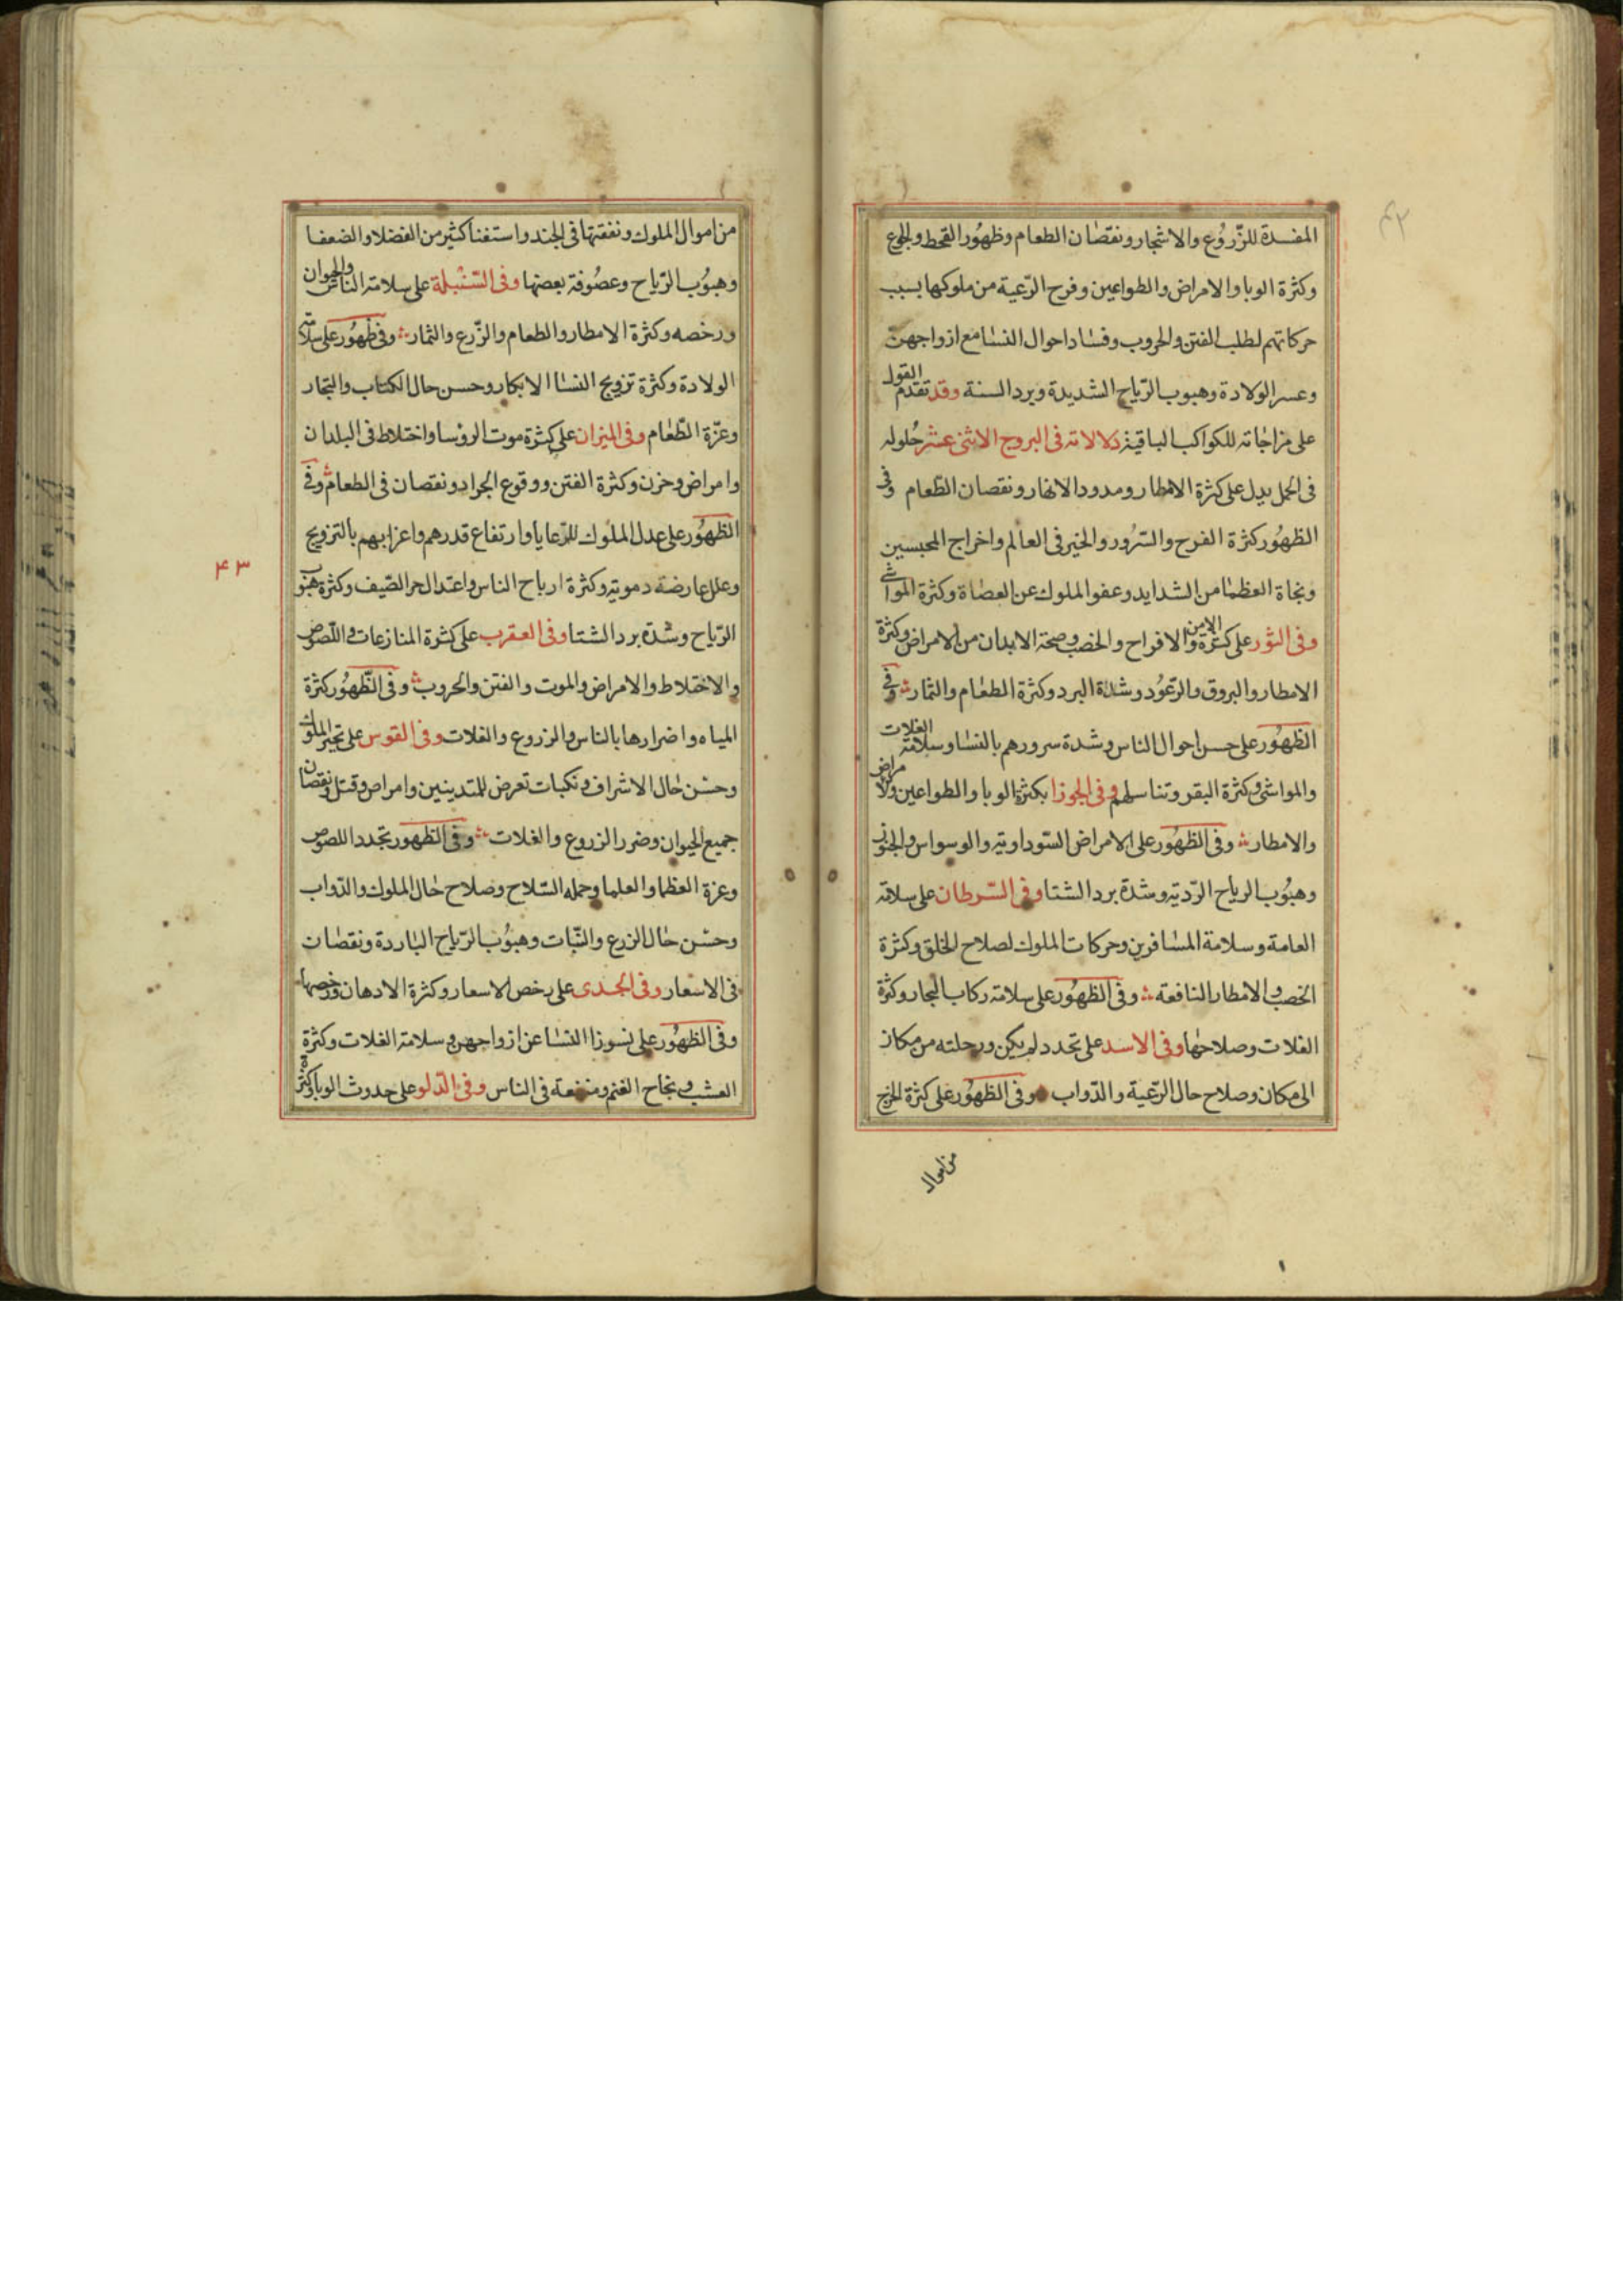 ٤٢
المفسدة للزّروُع والاشجار ونقصان الطعام وظهوُر القحط والجوع
وكثرة الوبا والامراض والطواعين وفرح الرّعية من ملوكها بسبب
حركاتهم لطلب الفتن والحروب وفساد احوال النسا مع ازواجهنّ
وعسر الولادة وهبوب الرّياح الشديدة وبرد السنة وقد تقدم القول
على مزاجاته للكواكب الباقية دلالاته فى البروج الاثنى عشر حُلوله
فى الحمل يدل على كثرة الامطار ومدود الانهار ونقصان الطّعام وفى
الظهوُر كثرة الفرح والسّرُور والخير فى العالم واخراج المحبسين
ونجاة العظما من الشدايد وعفو الملوك عن العصاة وكثرة المواشى
وفى الثور على كثرة الامن والافراح والخصب وصحة الابدان من الامراض وكثرة
الامطار والبروق والرّعوُد وشدة البرد وكثرة الطعام والثمار وفى
الظهوُر على حسن احوال الناس وشدة سرورهم بالنسا وسلامة الغلات
والمواشى وكثرة البقر وتناسلهم وفى الجوزا بكثرة الوبا والطواعين والامراض
والامطار وفى الظهوُر على الامراض السّوداوية والوسواس والجنون
وهبُوب الرياح الرّدية وشدة برد الشتا وفى السّرطان على سلامة
العامة وسلامة المسافرين وحركات الملوك لصلاح الخلق وكثرة
الخصب والامطار النافعة وفى الظهوُر على سلامة ركاب البحار وكثرة
الغلات وصلاحها وفى الاسد على تجدد لم يكن ورحلته من مكان
الى مكان وصلاح حال الرّعية والدّواب وفى الظهوُر على كثرة الخرج
من اموال
من اموال الملوك ونفقتها فى الجند واستغنا كثير من الفضلا والضعفا
وهبوُب الرّياح وعصُوفة بعضها وفى السّنبلة على سلامة الناس والحيوان
ورخصه وكثرة الامطار والطعام والزّرع والثمار وفى ظهوُر على سلامة
الولادة وكثرة تزويج النسا الابكار وحسن حال الكتاب والتجار
وعزّة الطّعام وفى الميزان على كثرة موت الروسا واختلاط فى البلدان
وامراض وحزن وكثرة الفتن ووقوع الجراد ونقصان فى الطعام وفى
الظهوُر على عدل الملوك للرّعايا وارتفاع قدرهم واعزابهم بالتزويج
وعلل عارضة دموية وكثرة ارباح الناس واعتدال حر الصّيف وكثرة هبوب
٤٣
الرّياح وشدّة برد الشتا وفى العقرب على كثرة المنازعات واللّصوص
والاختلاط والامراض والموت والفتن والحروب وفى الظّهوُر كثرة
المياه واضرارها بالناس والزروع والغلات وفى القوس على تجبر الملوك
وحسْن حَال الاشراف ونكبات تعرض للمتدينين وامراض وقتل ونقصان
جميع الحيوان وضرر الزروع والغلات وفى الظهور تجدد اللصوص
وعزة العظما والعلما وحمله السّلاح وصلاح حَال الملوك والدّواب
وحسْن حَال الزرع والنّبات وهبوُب الرّياح الباردة ونقصان
فى الاسعار وفى الجدى على رخص الاسعار وكثرة الادهان ورخصها
وفى الظهوُر على نسوزا النسا عن ازواجهن وسلامة الغلات وكثرة
العشب ونجاح الغنم ومنفعة فى الناس وفى الدّلو على حدوث الوبا وكثرة